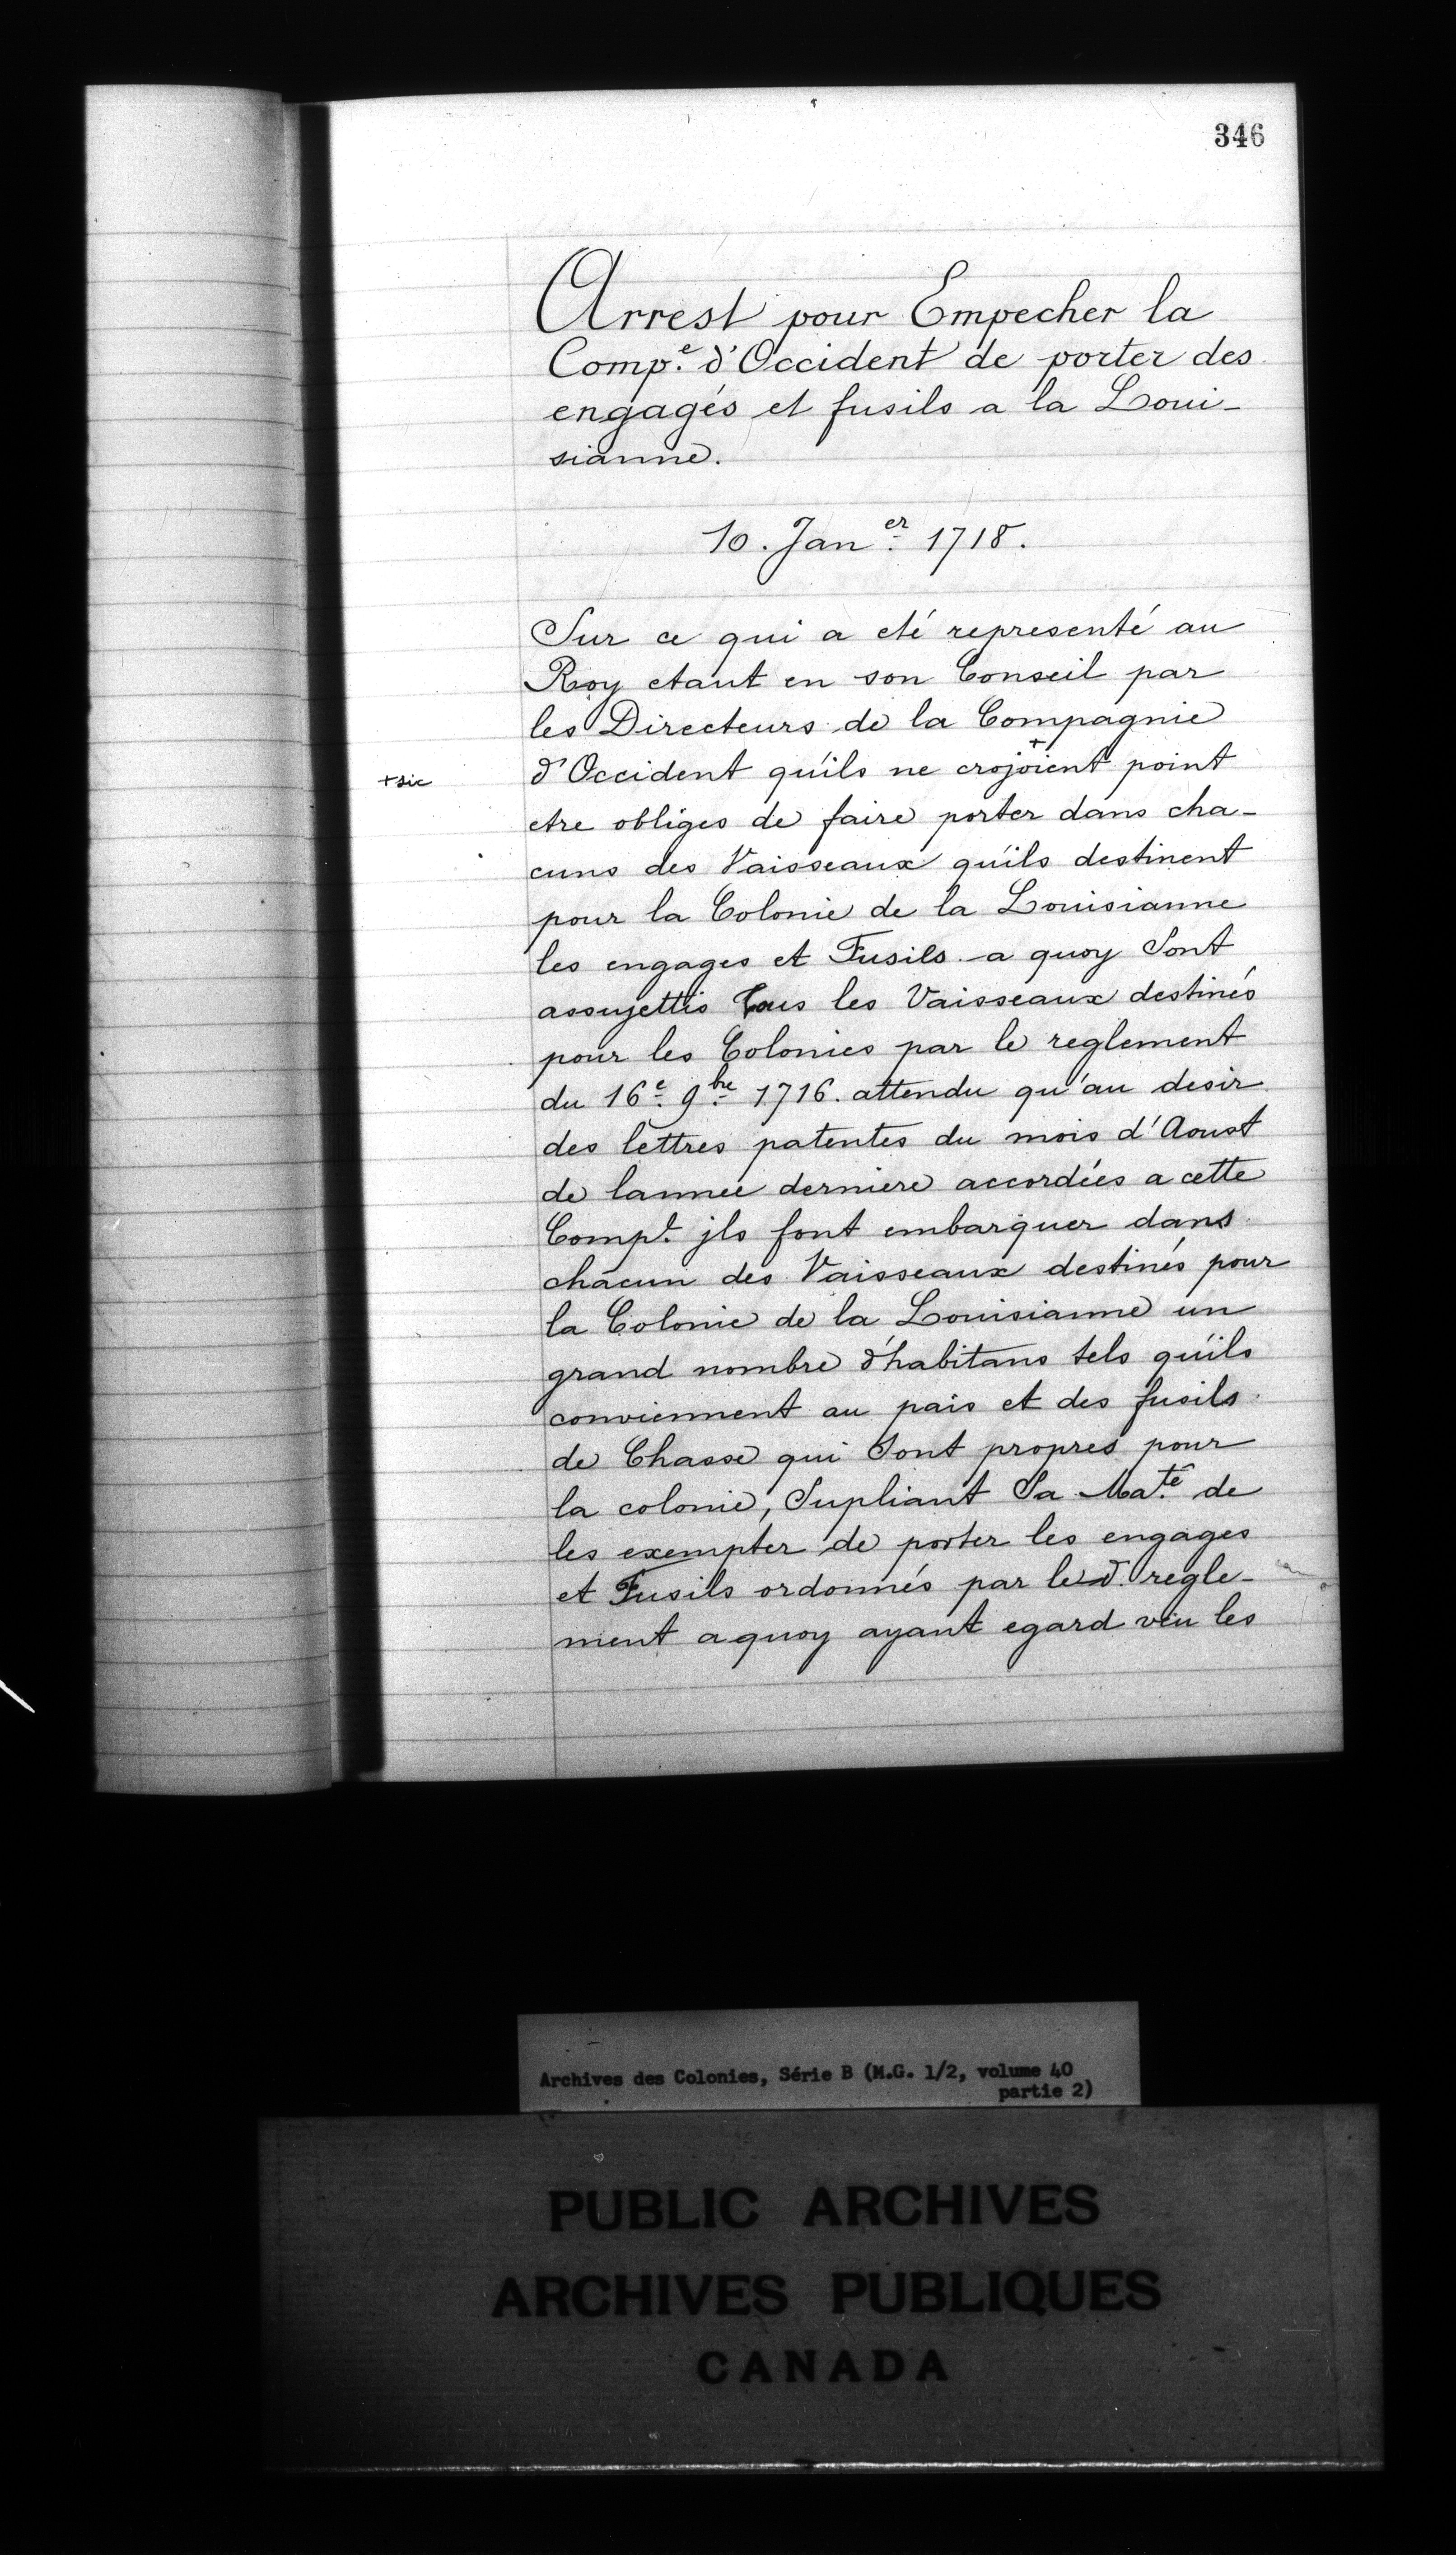 346
Arrest pour Empecher la
Comp.e d'Occident de porter des
engagés et fusils a la Loui-
sianne.
10. Jan.er 1718.
Sur ce qui a eté representé au
Roy etant en son Conseil par
les Directeurs de la Compagnie
+sic d'Occident qu'ils ne crojoient+ point
etre obliges de faire porter dans cha-
cuns des Vaisseaux qu'ils destinent
pour la Colonie de la Louisianne
les engages et Fusils a quoy Sont
assujettis tous les Vaisseaux destinés
pour les Colonies par le reglement
du 16.e 9.bre 1716. attendu qu'au desir
des lettres patentes du mois d'Aoust
de lannee derniere accordées a cette
Comp.e jls font embarquer dans
chacun des Vaisseaux destinés pour
la Colonie de la Louisianne un
grand nombre d'habitans tels qu'ils
conviennent au pais et des fusils
de Chasse qui Sont propres pour
la colonie, Supliant Sa Ma.té de
les exempter de porter les engages
et Fusils ordonnés par led. regle-
ment a quoy ayant egard veu les
Archives des Colonies, Série B (M.G. 1/2, volume 40
partie 2)
PUBLIC ARCHIVES
ARCHIVES PUBLIQUES
CANADA